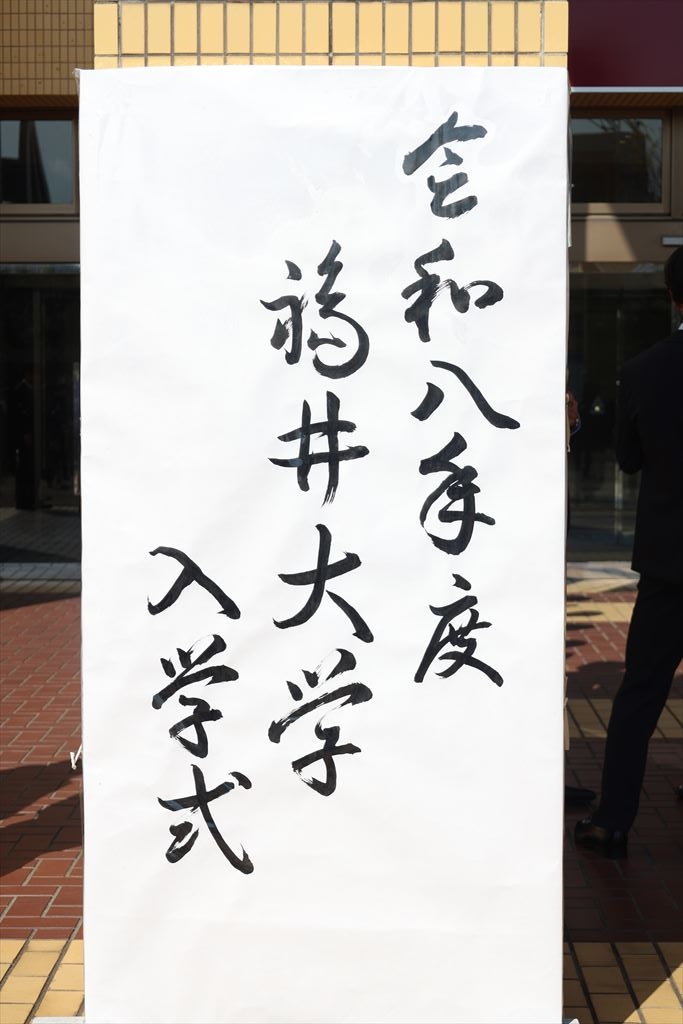 令和八年度
福井大学
入学式